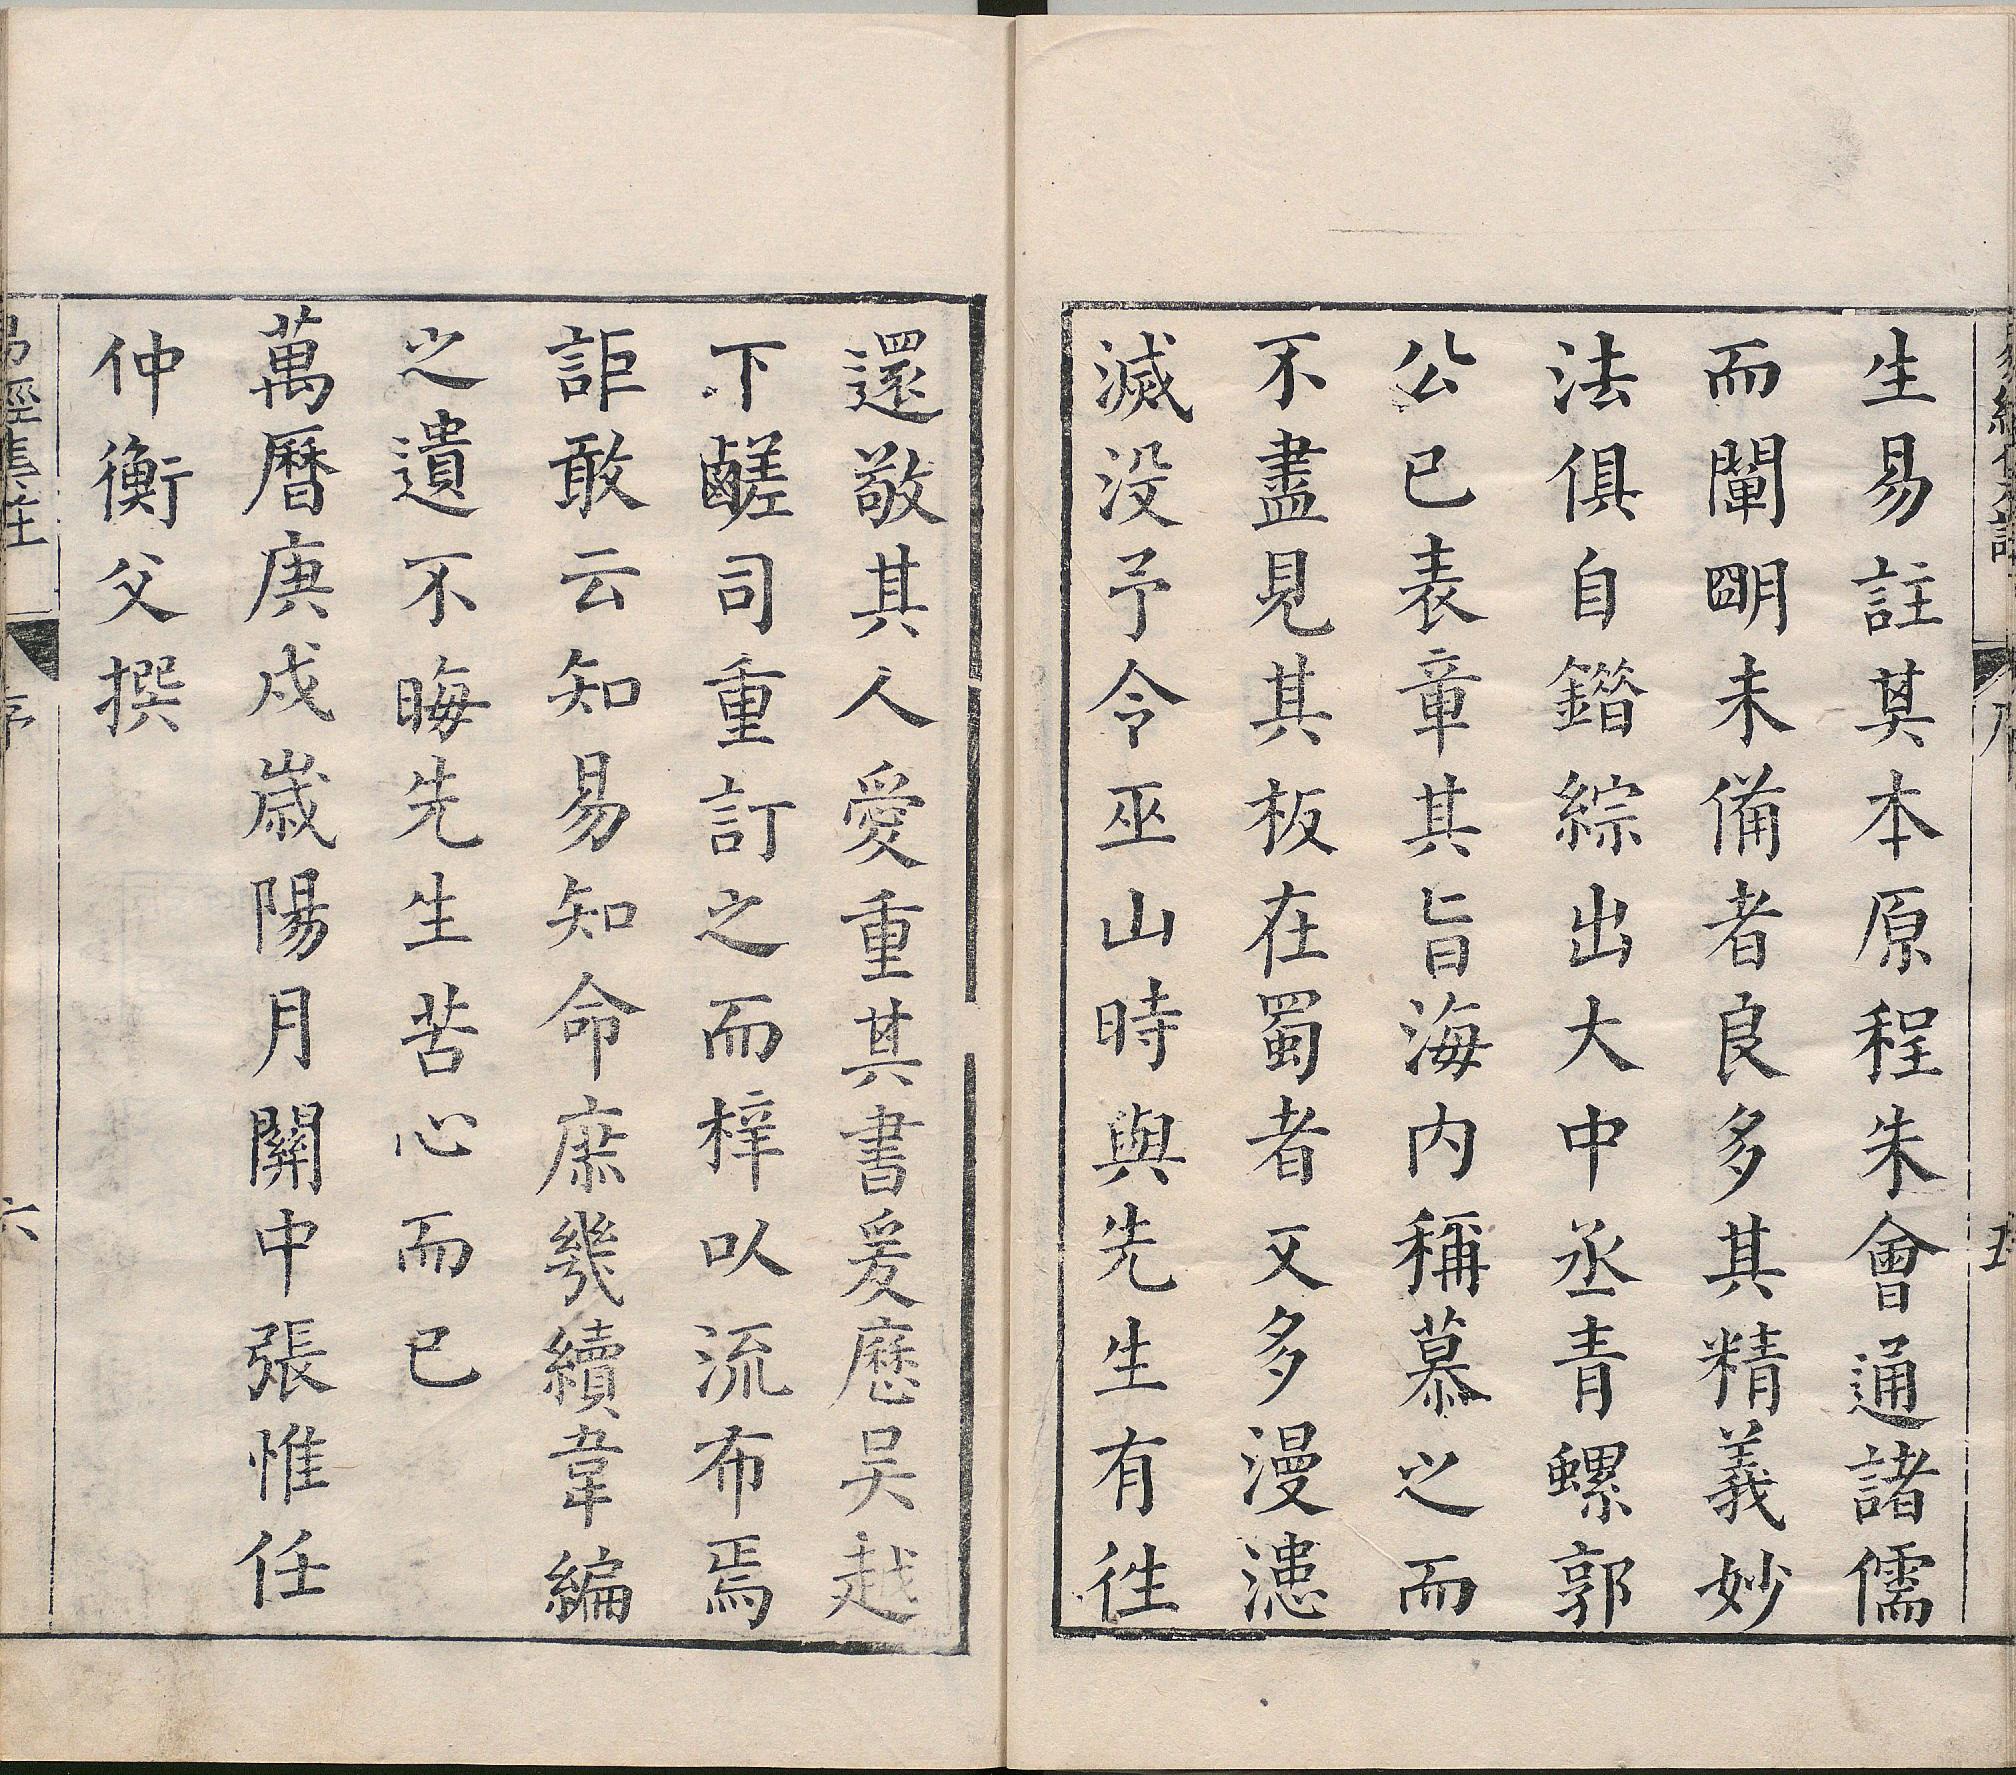 生易註其本原程朱會通諸儒
而闡明未備者良多其精義妙
法俱自錯綜出大中丞青螺郭
公已表章其旨海内稱慕之而
不盡見其板在蜀者又多漫漶
滅没予令巫山時與先生有徃
五
還敬其人愛重其書爰歷吴越
下鹺司重訂之而梓以流布焉
詎敢云知易知命庶幾續韋編
之遺不晦先生苦心而已
萬曆庚戌歲陽月關中張惟任
仲衡父撰
易經集注
序
六